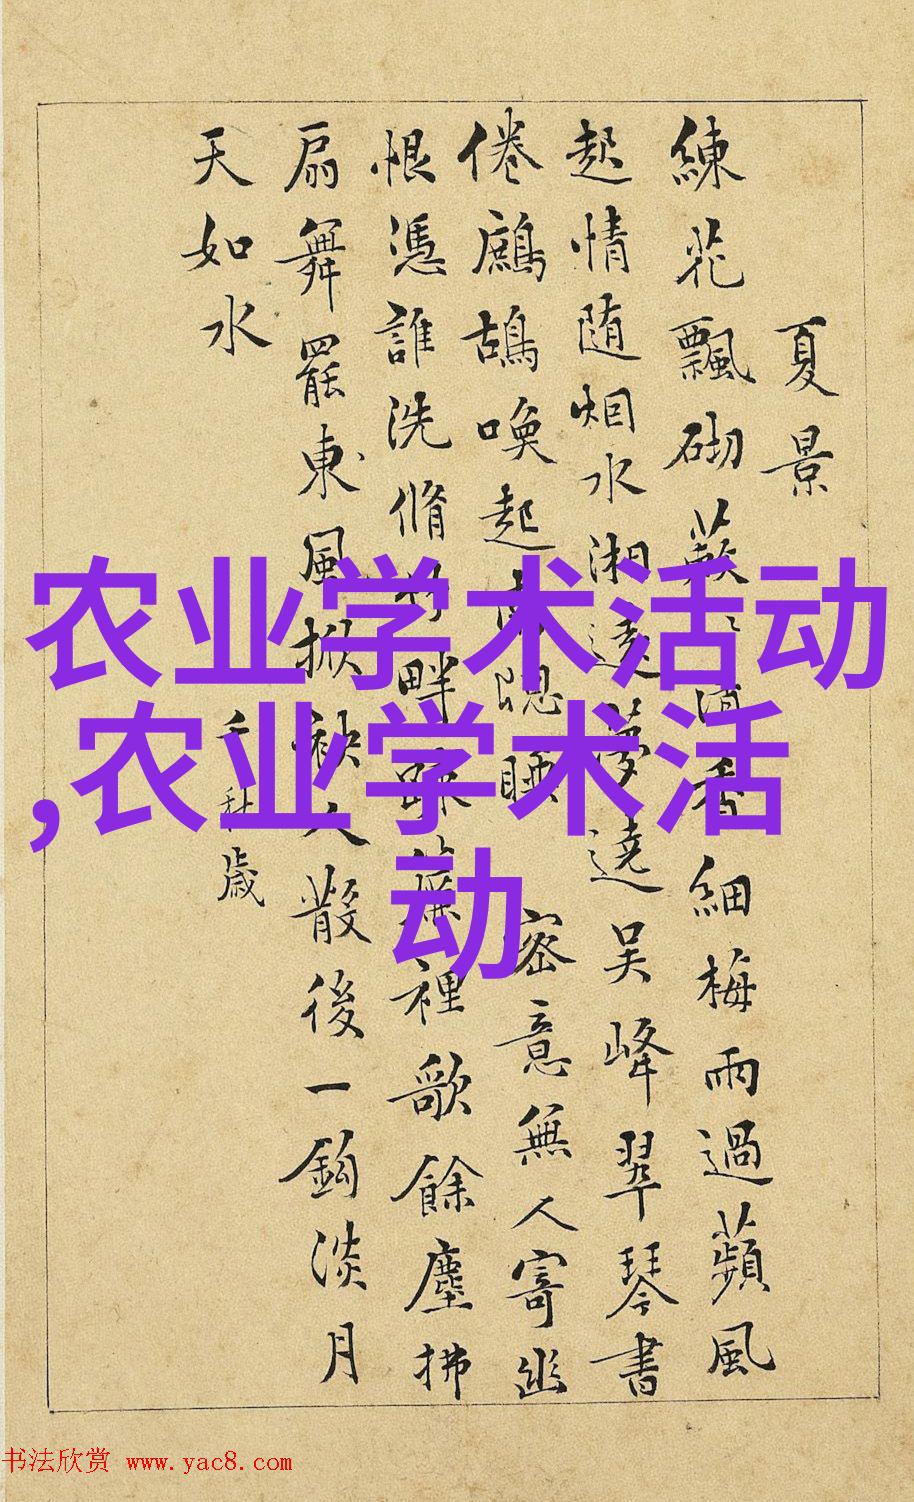 夏景
練花飄砌蔌清香細梅雨過蘋風
起情随烟水湘遠夢遶吴峰翠琴書
倦鷓鴣喚起南窗睡 密意無人寄幽
恨憑誰洗脩竹畔踈簾裡歌餘塵拂
扇舞罷東風掀袂人散後一鈎淡月
天如水
千秋歲
农业学术活动
,农业学术活
动
书法欣赏 www.yac8.com